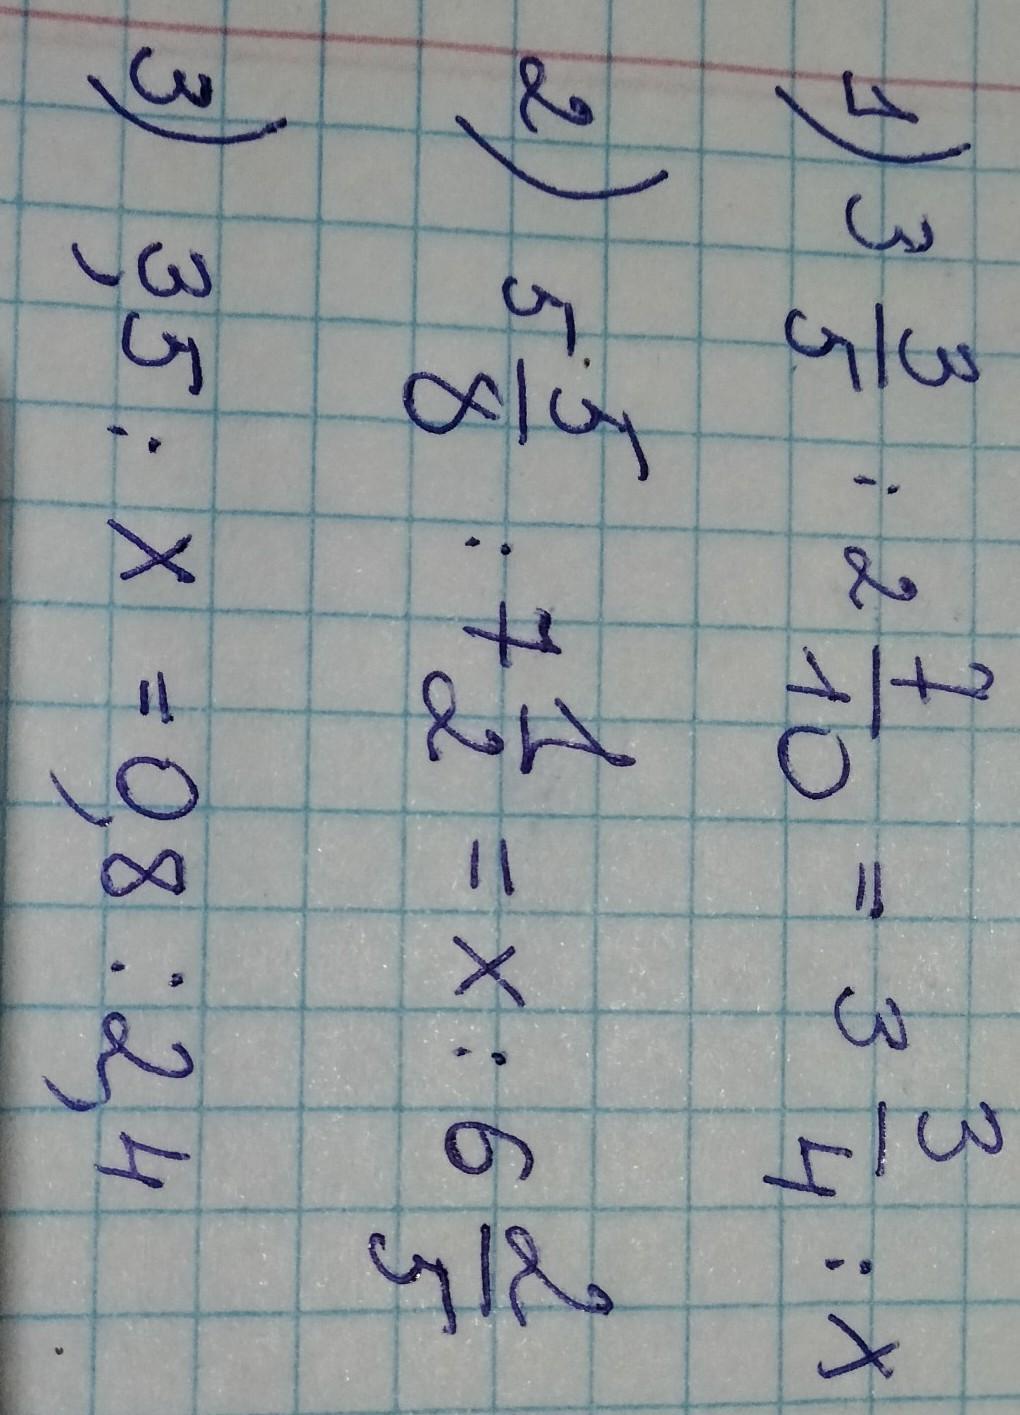 1) 3 3/5 : 2 7/10 = 3 3/4 : x
2) 5 5/8 : 7 1/2 = x : 6 2/5
3) 3,5 : x = 0,8 : 2,4